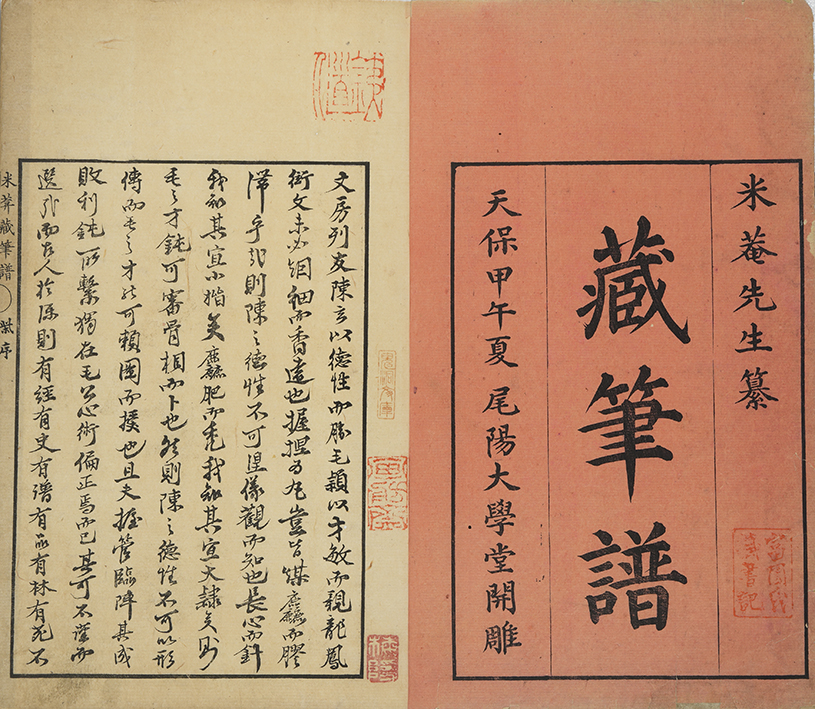 米菴先生纂
藏筆譜
天保甲午夏 尾陽大學堂開雕
文房列友陳玄以德性而勝毛穎以才敏而親龍鳳
衒文未必絪細而香遠也握捏為丸豈皆煤麤而膠
滯乎哉則陳之德性不可逞儀觀而知也長心而針
我知其宜小楷矣麤肥而禿我知其宜大隸矣則
毛之才鈍可審骨相而卜也然則陳之德性不可以形
傳而毛之才能可賴圖而援也且夫握管臨陣其成
敗利鈍所繫獨在毛公心術偏正焉而已其可不謹而
選乎而古人於除則有經有史有譜有品有林有苑不
米菴藏筆譜 序